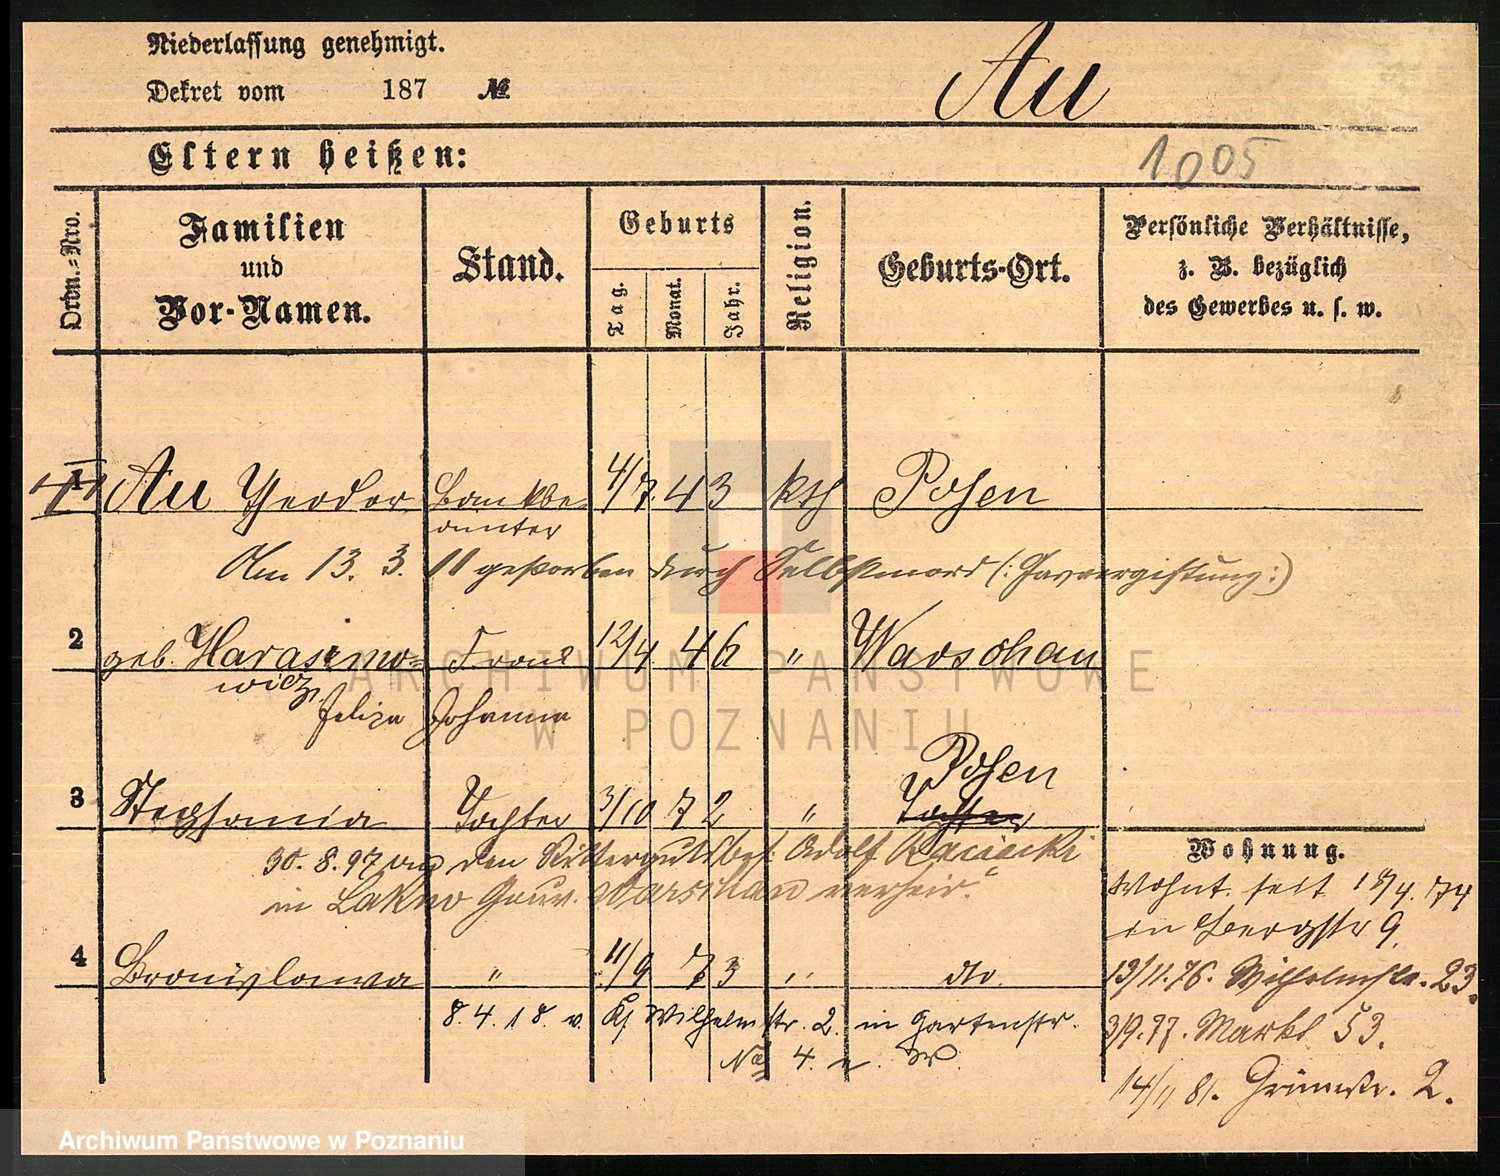 Niederlassung genehmigt.
Dekret vom 187 №
Au
Eltern heißen:
1005
Ordn.-Nro.
Familien und Vor-Namen.
Stand.
Geburts
Tag.
Monat.
Jahr.
Religion.
Geburts-Ort.
Persönliche Verhältnisse, z. B. bezüglich des Gewerbes u. s. w.
1 Au Theodor Bankbe= 4/7. 43 kth Posen
amter
Am 13. 3. 11 gestorben durch Selbstmord (: Gasvergiftung :)
2 geb. Harasimo= Frau 12/4. 46 " Warschau
wicz,
Feliza Johanna
Posen
3 Stephania Tochter 3/10 72 " Tochter
30. 8. 97 von dem Rittergutsbes. Adolf
in Gouv. Warschau verheir.
Wohnung.
Wohnt seit 18/4. 74
in Bergstr 9.
4 Bronislawa " 11/9 73 " dto.
13/11. 76. Wilhelmstr. 23.
8. 4. 18. v. Wilhelmstr. 2 in Gartenstr.
No 4. n. W.
3/9. 77. Markt 53.
14/11 81. 2.
ARCHIWUM PAŃSTWOWE
W POZNANIU
Archiwum Państwowe w Poznaniu